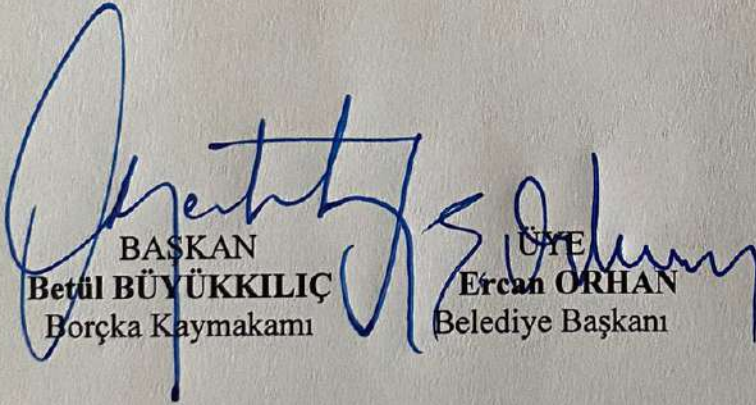 BAŞKAN
Betül BÜYÜKKILIÇ
Borçka Kaymakamı
ÜYE
Ercan ORHAN
Belediye Başkanı